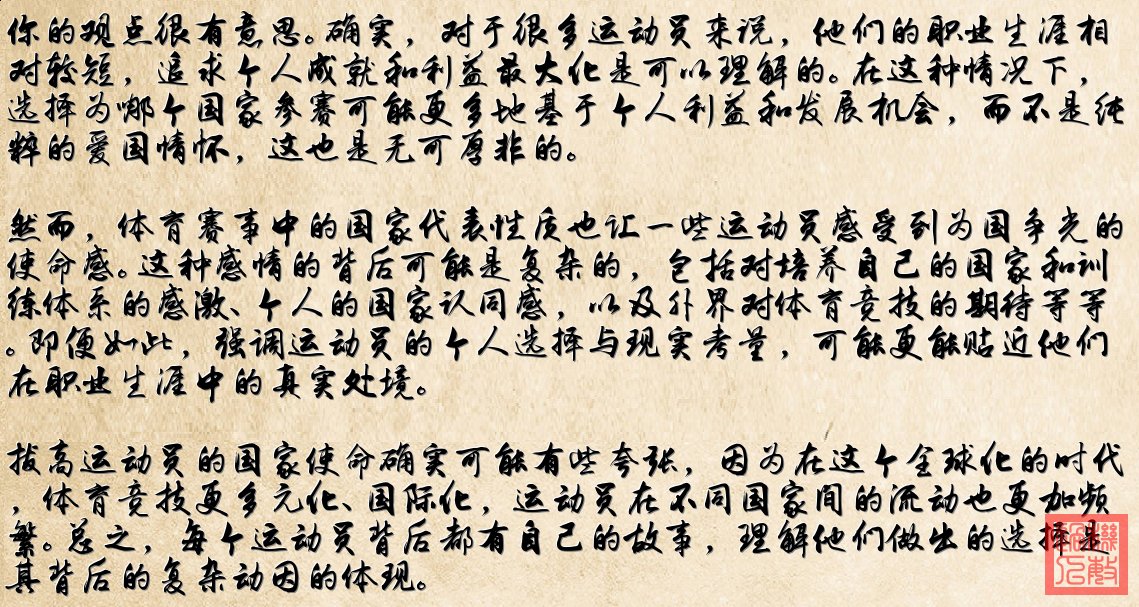 你的观点很有意思。确实，对于很多运动员来说，他们的职业生涯相
对较短，追求个人成就和利益最大化是可以理解的。在这种情况下，
选择为哪个国家参赛可能更多地基于个人利益和发展机会，而不是纯
粹的爱国情怀，这也是无可厚非的。
然而，体育赛事中的国家代表性质也让一些运动员感受到为国争光的
使命感。这种感情的背后可能是复杂的，包括对培养自己的国家和训
练体系的感激、个人的国家认同感，以及外界对体育竞技的期待等等
。即便如此，强调运动员的个人选择与现实考量，可能更能贴近他们
在职业生涯中的真实处境。
拔高运动员的国家使命确实可能有些夸张，因为在这个全球化的时代
，体育竞技更多元化、国际化，运动员在不同国家间的流动也更加频
繁。总之，每个运动员背后都有自己的故事，理解他们做出的选择是
其背后的复杂动因的体现。